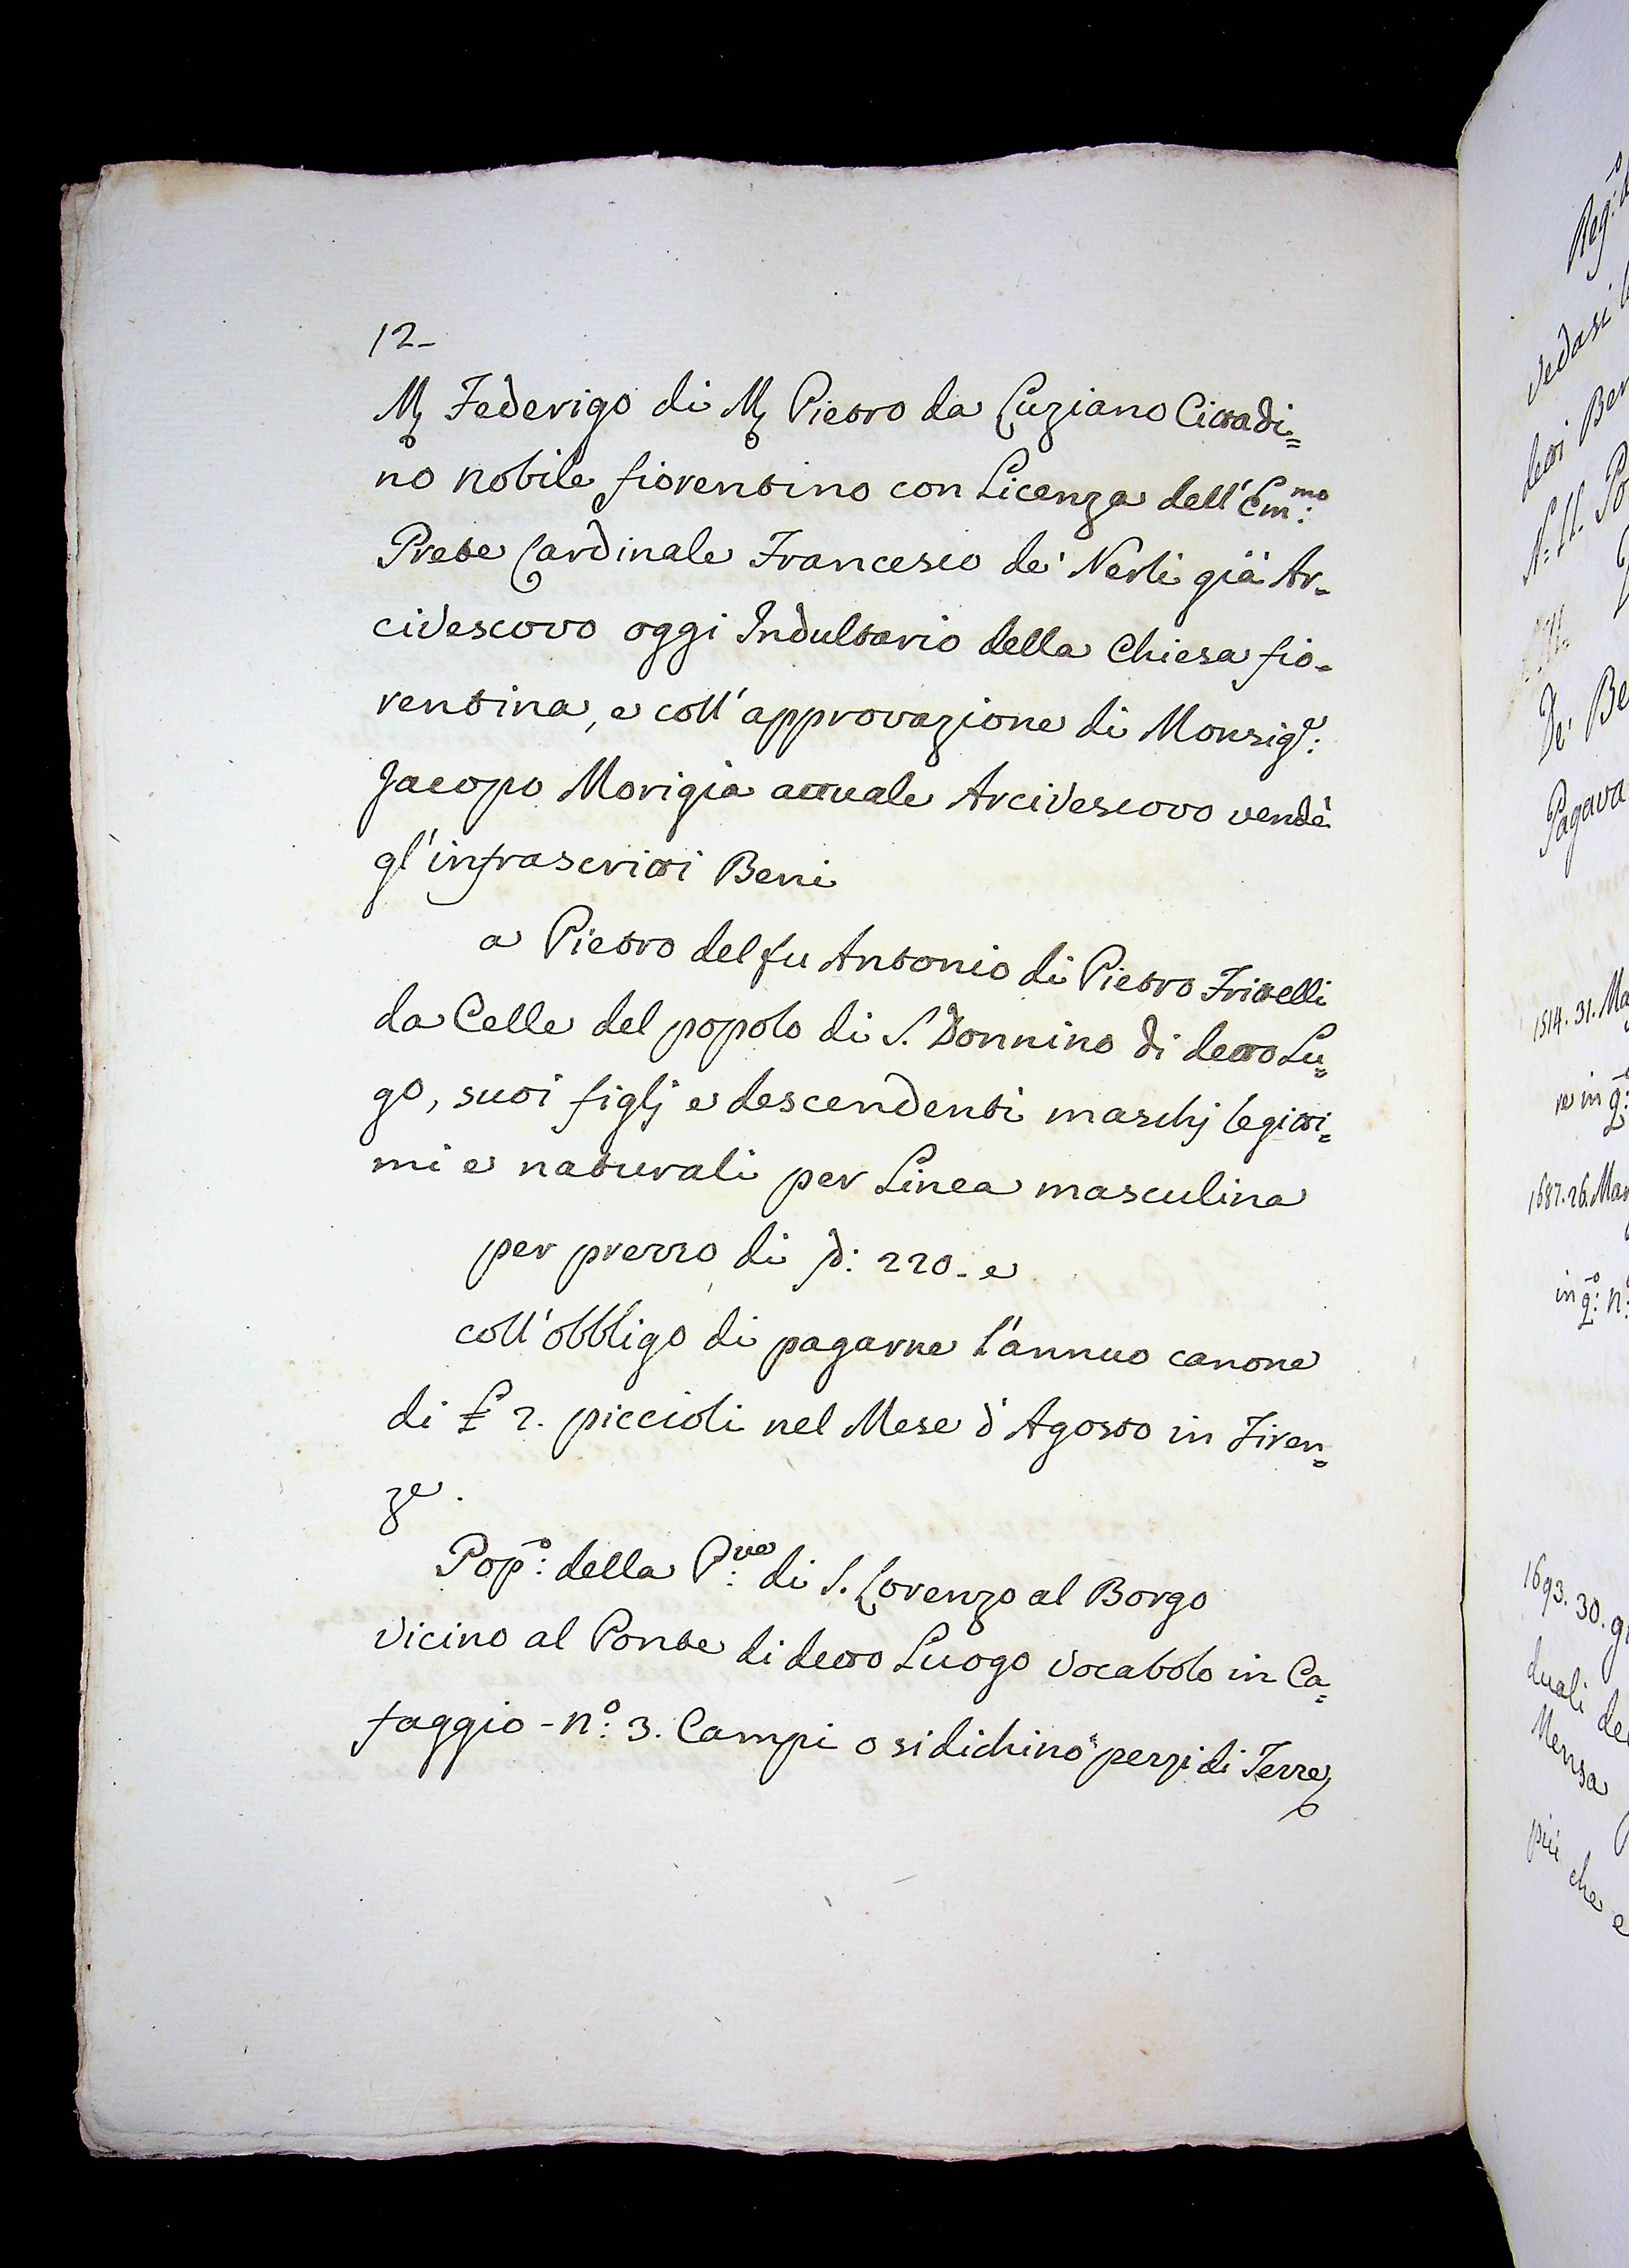 12-
M Federigo di M Pietro da Luziano Cittadi=
no nobile fiorentino con Licenza dell' Em:mo
Prete Cardinale Francesco de' Nerli già Ar=
civescovo oggi Indultario della Chiesa fio=
rentina, e coll' approvazione di Monsig:e
Jacopo Morigia attuale Arcivescovo vendè
gl' infrascritti Beni
a Pietro del fu Antonio di Pietro Frittelli
da Celle del popolo di S. Donnino di detto Lu=
go, suoi figlj e descendenti maschj legitti=
mi e naturali per Linea masculina
per prezzo di : 220- e
coll' obbligo di pagarne l'annuo canone
di £ 2. piccioli nel Mese d'Agosto in Firen=
ze.
Pop:o della P:ve di S. Lorenzo al Borgo
vicino al Ponte di detto Luogo vocabolo in Ca=
faggio - n:o 3. Campi o si dichino pezzi di Terre
Reg:
vedasi
detti Ben
N: LL. Po
De' Be
Pagava
1514. 31. Ma
re in q:o
1687. 26. Mar
in q:o n:
1693. 30. g
duali de
Mensa
più che e